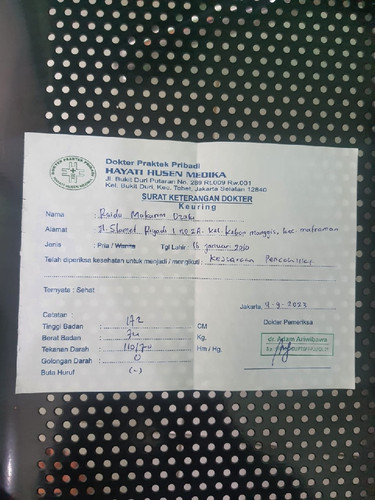 Dokter Praktek Pribadi
HAYATI HUSEN MEDIKA
Jl. Bukit Duri Putaran No. 289 Rt.009 Rw.001
Kel. Bukit Duri, Kec. Tebet, Jakarta Selatan 12840
SURAT KETERANGAN DOKTER
Keuring
Nama : Makarim
Alamat : Jl. Slamet Riyadi I no. 2A. kel. kebon manggis, kec. matraman
Jenis : Pria / Wanita Tgl Lahir : 16 januari
Telah diperiksa kesehatan untuk menjadi / mengikuti :
Ternyata : Sehat
Jakarta, 4-9-2023
Catatan :
Dokter Pemeriksa
Tinggi Badan : 172 CM
Berat Badan : Kg.
Tekenen Darah : 110/70 Hm / Hg.
Golongan Darah : O
Buta Huruf : (-)
dr. Adam Ariwibawa